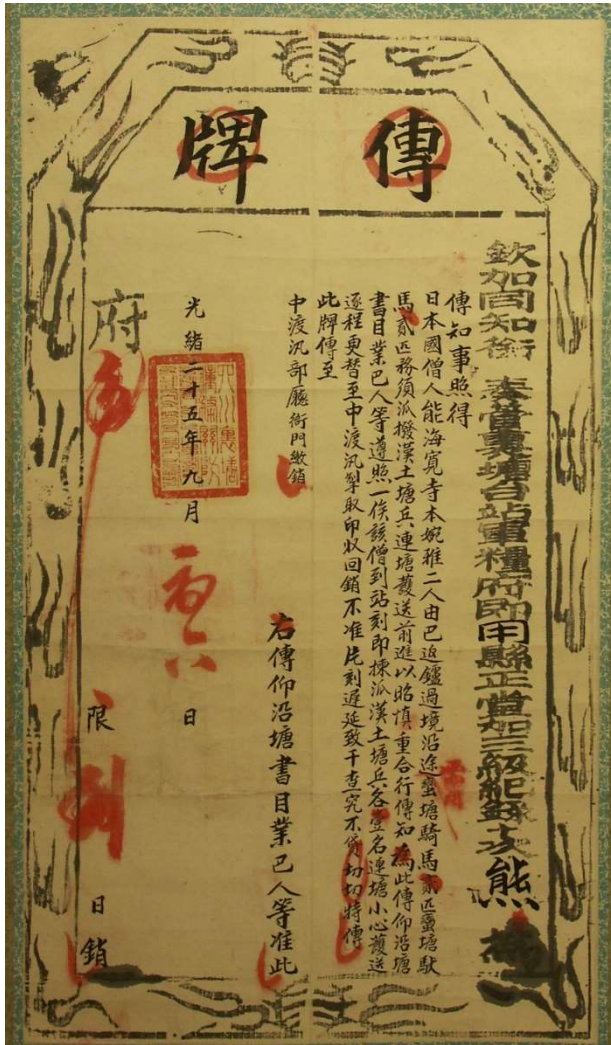 傳牌
欽加同知銜 奏管裏塘台站軍糧府即用縣正堂加三級紀錄十次熊 為
傳知事照得
日本國僧人能海寬寺本婉雅二人由巴返鑪過境沿途蠻塘騎馬貳匹蠻塘馱
馬貳匹務須派撥漢土塘兵連塘護送前進以昭慎重合行傳知為此傳仰沿塘
書目業巴人等遵照一俟該僧到站刻即揀派漢土塘兵各壹名連塘小心護送
逐程更替至中渡汛掣取印收回銷不准片刻遲延致干查究不貸切切特傳
此牌傳至
中渡汛部廳衙門繳銷
右傳仰沿塘書目業巴人等准此
光緒二十五年九月 日
府
限 日銷